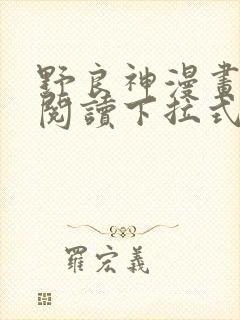 野良神漫畫
閱讀下拉式
羅宏義